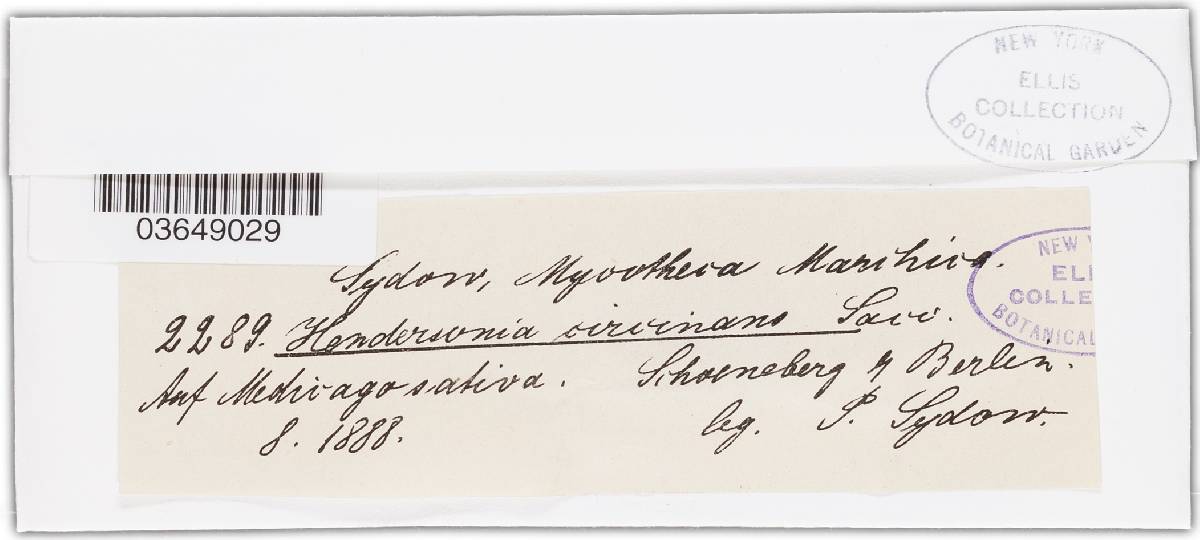 NEW YORK
ELLIS
COLLECTION
BOTANICAL GARDEN
03649029
Sydow, Mycotheca Marchica.
NEW Y
ELI
COLLE
BOTANICAL
2289. Hendersonia circinans Sacc.
Auf Medicago sativa. Schoeneberg b/ Berlin.
8. 1888. leg. P. Sydow.